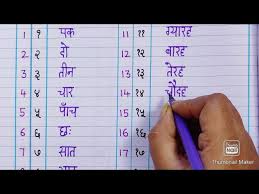 1 १ एक 11 ११ ग्यारह
2 २ दो 12 १२ बारह
3 ३ तीन 13 १३ तेरह
4 ४ चार 14 १४ चौदह
5 ५ पाँच 15 १५
6 ६ छः 16 १६
7 ७ सात 17 १७
Thumbnail Maker